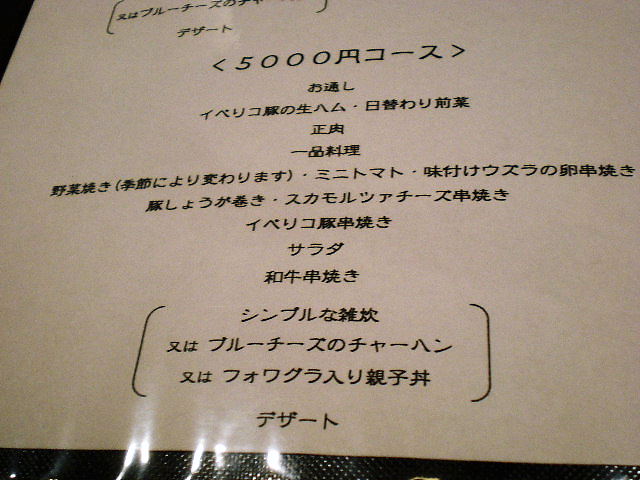 又はブルーチーズのチャー
デザート
＜５０００円コース＞
お通し
イベリコ豚の生ハム・日替わり前菜
正肉
一品料理
野菜焼き(季節により変わります)・ミニトマト・味付けウズラの卵串焼き
豚しょうが巻き・スカモルツァチーズ串焼き
イベリコ豚串焼き
サラダ
和牛串焼き
シンプルな雑炊
又は ブルーチーズのチャーハン
又は フォワグラ入り親子丼
デザート